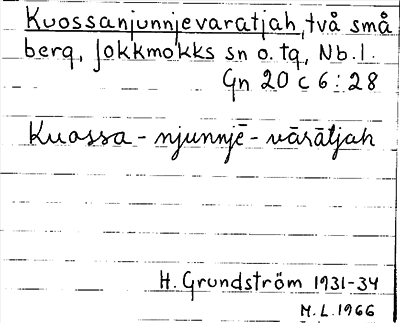 Kuossanjunnjevaratjah, två små
berg, Jokkmokks sn o. tg, Nb. l.
Gn 20 C 6 : 28
Kuossa - njunnjē - vārātjah
H. Grundström 1931-34
M. L. 1966